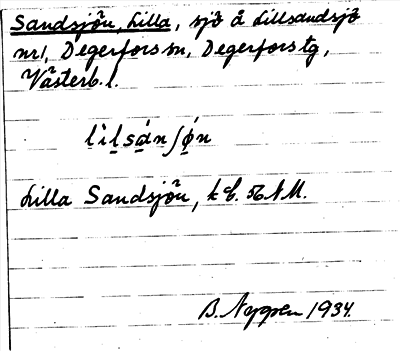 Sandsjön, Lilla, sjö å Lillsandsjö
nr1, Degerfors sn, Degerfors tg,
Västerb. l.
lìlsánʃø̀n
Lilla Sandsjön, k bl. 56 N.M.
B. Nygren 1934